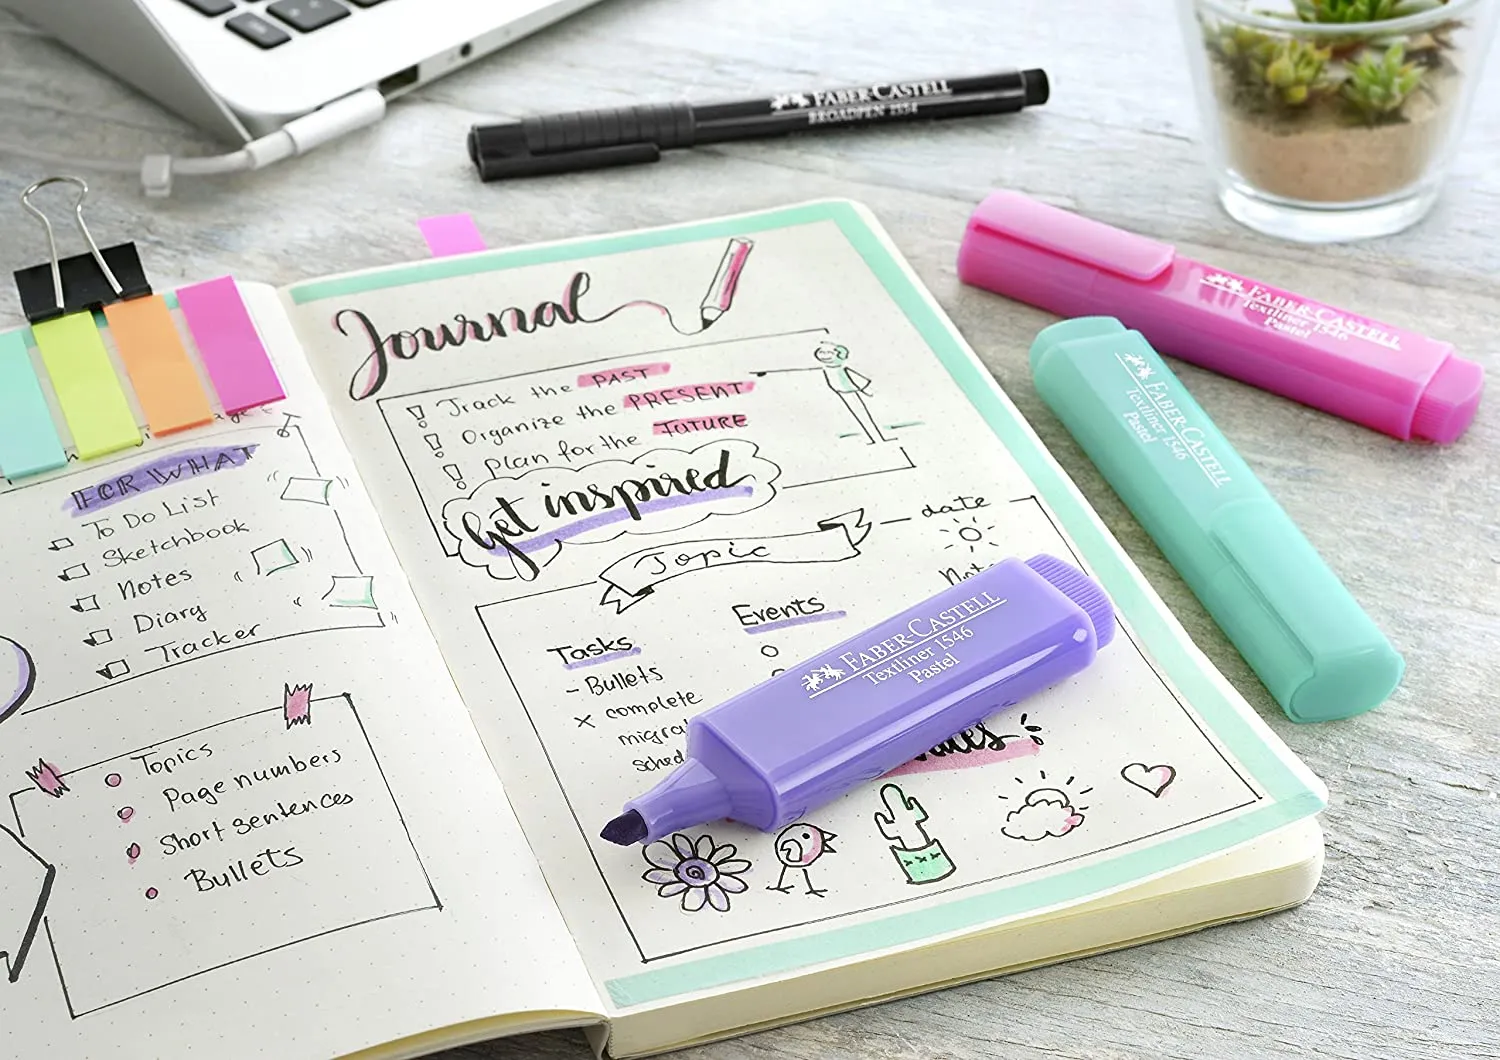 FABER-CASTELL
BROADPEN 1554
FABER-CASTELL
Textliner 1546
Pastel
FABER-CASTELL
Textliner 1546
Pastel
Journal
Track the PAST
Organize the PRESENT
plan for the FUTURE
Get inspired
Topic
date
Tasks
- Bullets
x complete
Events
FABER-CASTELL
Textliner 1546
Pastel
FOR WHAT
To Do List
Sketchbook
Notes
Diary
Tracker
Topics
Page numbers
Short sentences
Bullets